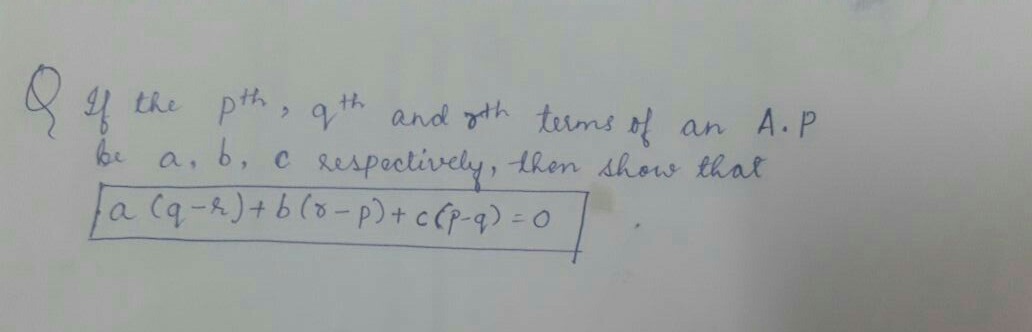 Q If the pth, qth and rth terms of an A.P
be a, b, c respectively, then show that
a (q-r)+b(r-p)+c(p-q)=0